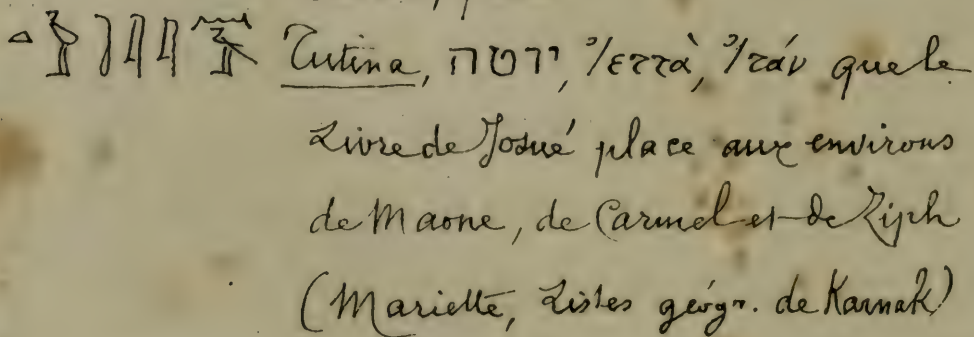 Tutina, יטה, Ἰεττὰ, Ἰτάν que le
Livre de Josué place aux environs
de Maone, de Carmel et de Ziph
(Mariette, Listes géogr. de Karnak)